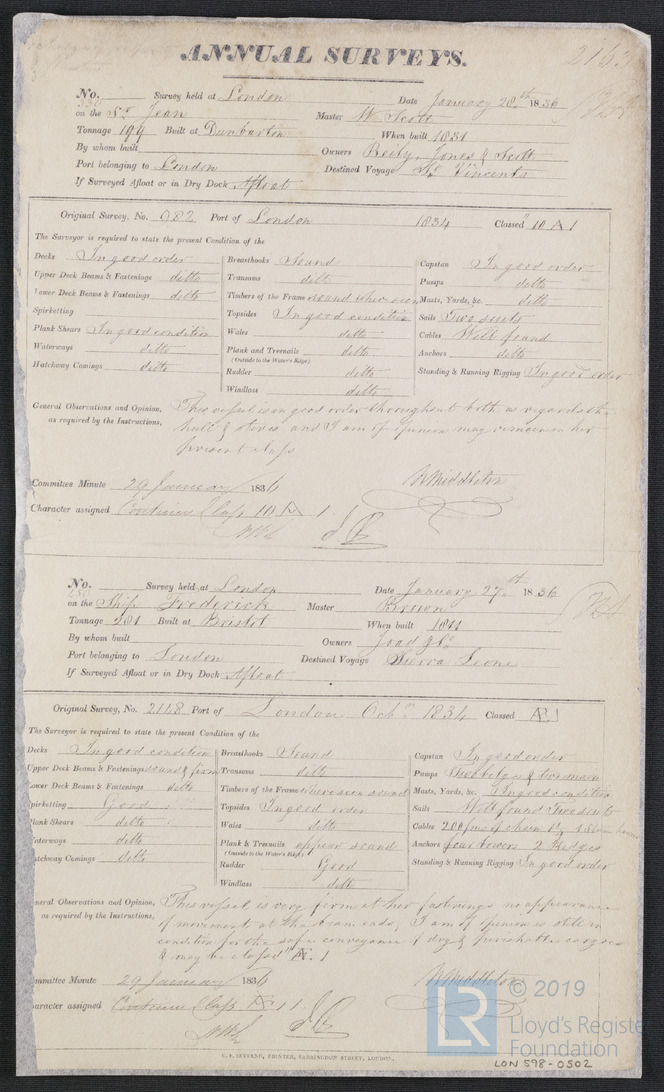 2163
ANNUAL SURVEYS.
No. 330 Survey held at London Date January 28th 1836
on the St. Jean Master W Scott
Tonnage 199 Built at Dunbarton When built 1831
By whom built Owners Reily, Jones & Scott
Port belonging to London Destined Voyage St. Vincents
If Surveyed Afloat or in Dry Dock Afloat
Original Survey, No. 982 Port of London 1834 Classed 10 A 1
The Surveyor is required to state the present Condition of the
Decks In good order Breasthooks Sound Capstan In good order
Upper Deck Beams & Fastenings ditto Transoms ditto Pumps ditto
Lower Deck Beams & Fastenings ditto Timbers of the Frame sound where seen Masts, Yards, &c. ditto
Spirketting Topsides In good condition Sails Two suits
Plank Shears In good condition Wales ditto Cables Well found
Waterways ditto Plank and Treenails ditto Anchors ditto
(Outside to the Water's Edge)
Hatchway Comings ditto Rudder ditto Standing & Running Rigging In good order
Windlass ditto
General Observations and Opinion, This vessel is in good order throughout both as regards the
as required by the Instructions, hull & stores and I am of opinion may remain in her
present class
W Middleton
Committee Minute 29 January 1836
Character assigned Continue Class 10 A 1
No. 230 Survey held at London Date January 27th 1836
on the Ship Frederick Master Bruen
Tonnage 301 Built at Bristol When built 1811
By whom built Owners Joad & Co
Port belonging to London Destined Voyage Sierra Leone
If Surveyed Afloat or in Dry Dock Afloat
Original Survey, No. 2148 Port of London Octr. 1834 Classed Æ 1
The Surveyor is required to state the present Condition of the
Decks In good condition Breasthooks Sound Capstan In good order
Upper Deck Beams & Fastenings sound & firm Transoms ditto Pumps
Lower Deck Beams & Fastenings ditto Timbers of the Frame where seen sound Masts, Yards, &c. In good condition
Spirketting Good Topsides In good order Sails Well found Two suits
Plank Shears ditto Wales ditto Cables 200 fms of chain
Waterways ditto Plank & Treenails appear sound Anchors four bowers 2 Kedges
(Outside to the Water's Edge)
Hatchway Comings ditto Rudder Good Standing & Running Rigging In good order
Windlass ditto
General Observations and Opinion, This vessel is very firm at her fastenings no appearance
as required by the Instructions, of movement at the beam ends, I am of opinion is still in
condition for the safe conveyance of dry & perishable cargoes
& may be classed Æ. 1
W Middleton
Committee Minute 29 January 1836
Character assigned Continue Class Æ 1
C. F. SEYFANG, PRINTER, FARRINGDON STREET, LONDON.
LR © 2019
Lloyd's Registe
Foundation
LON 598-0502